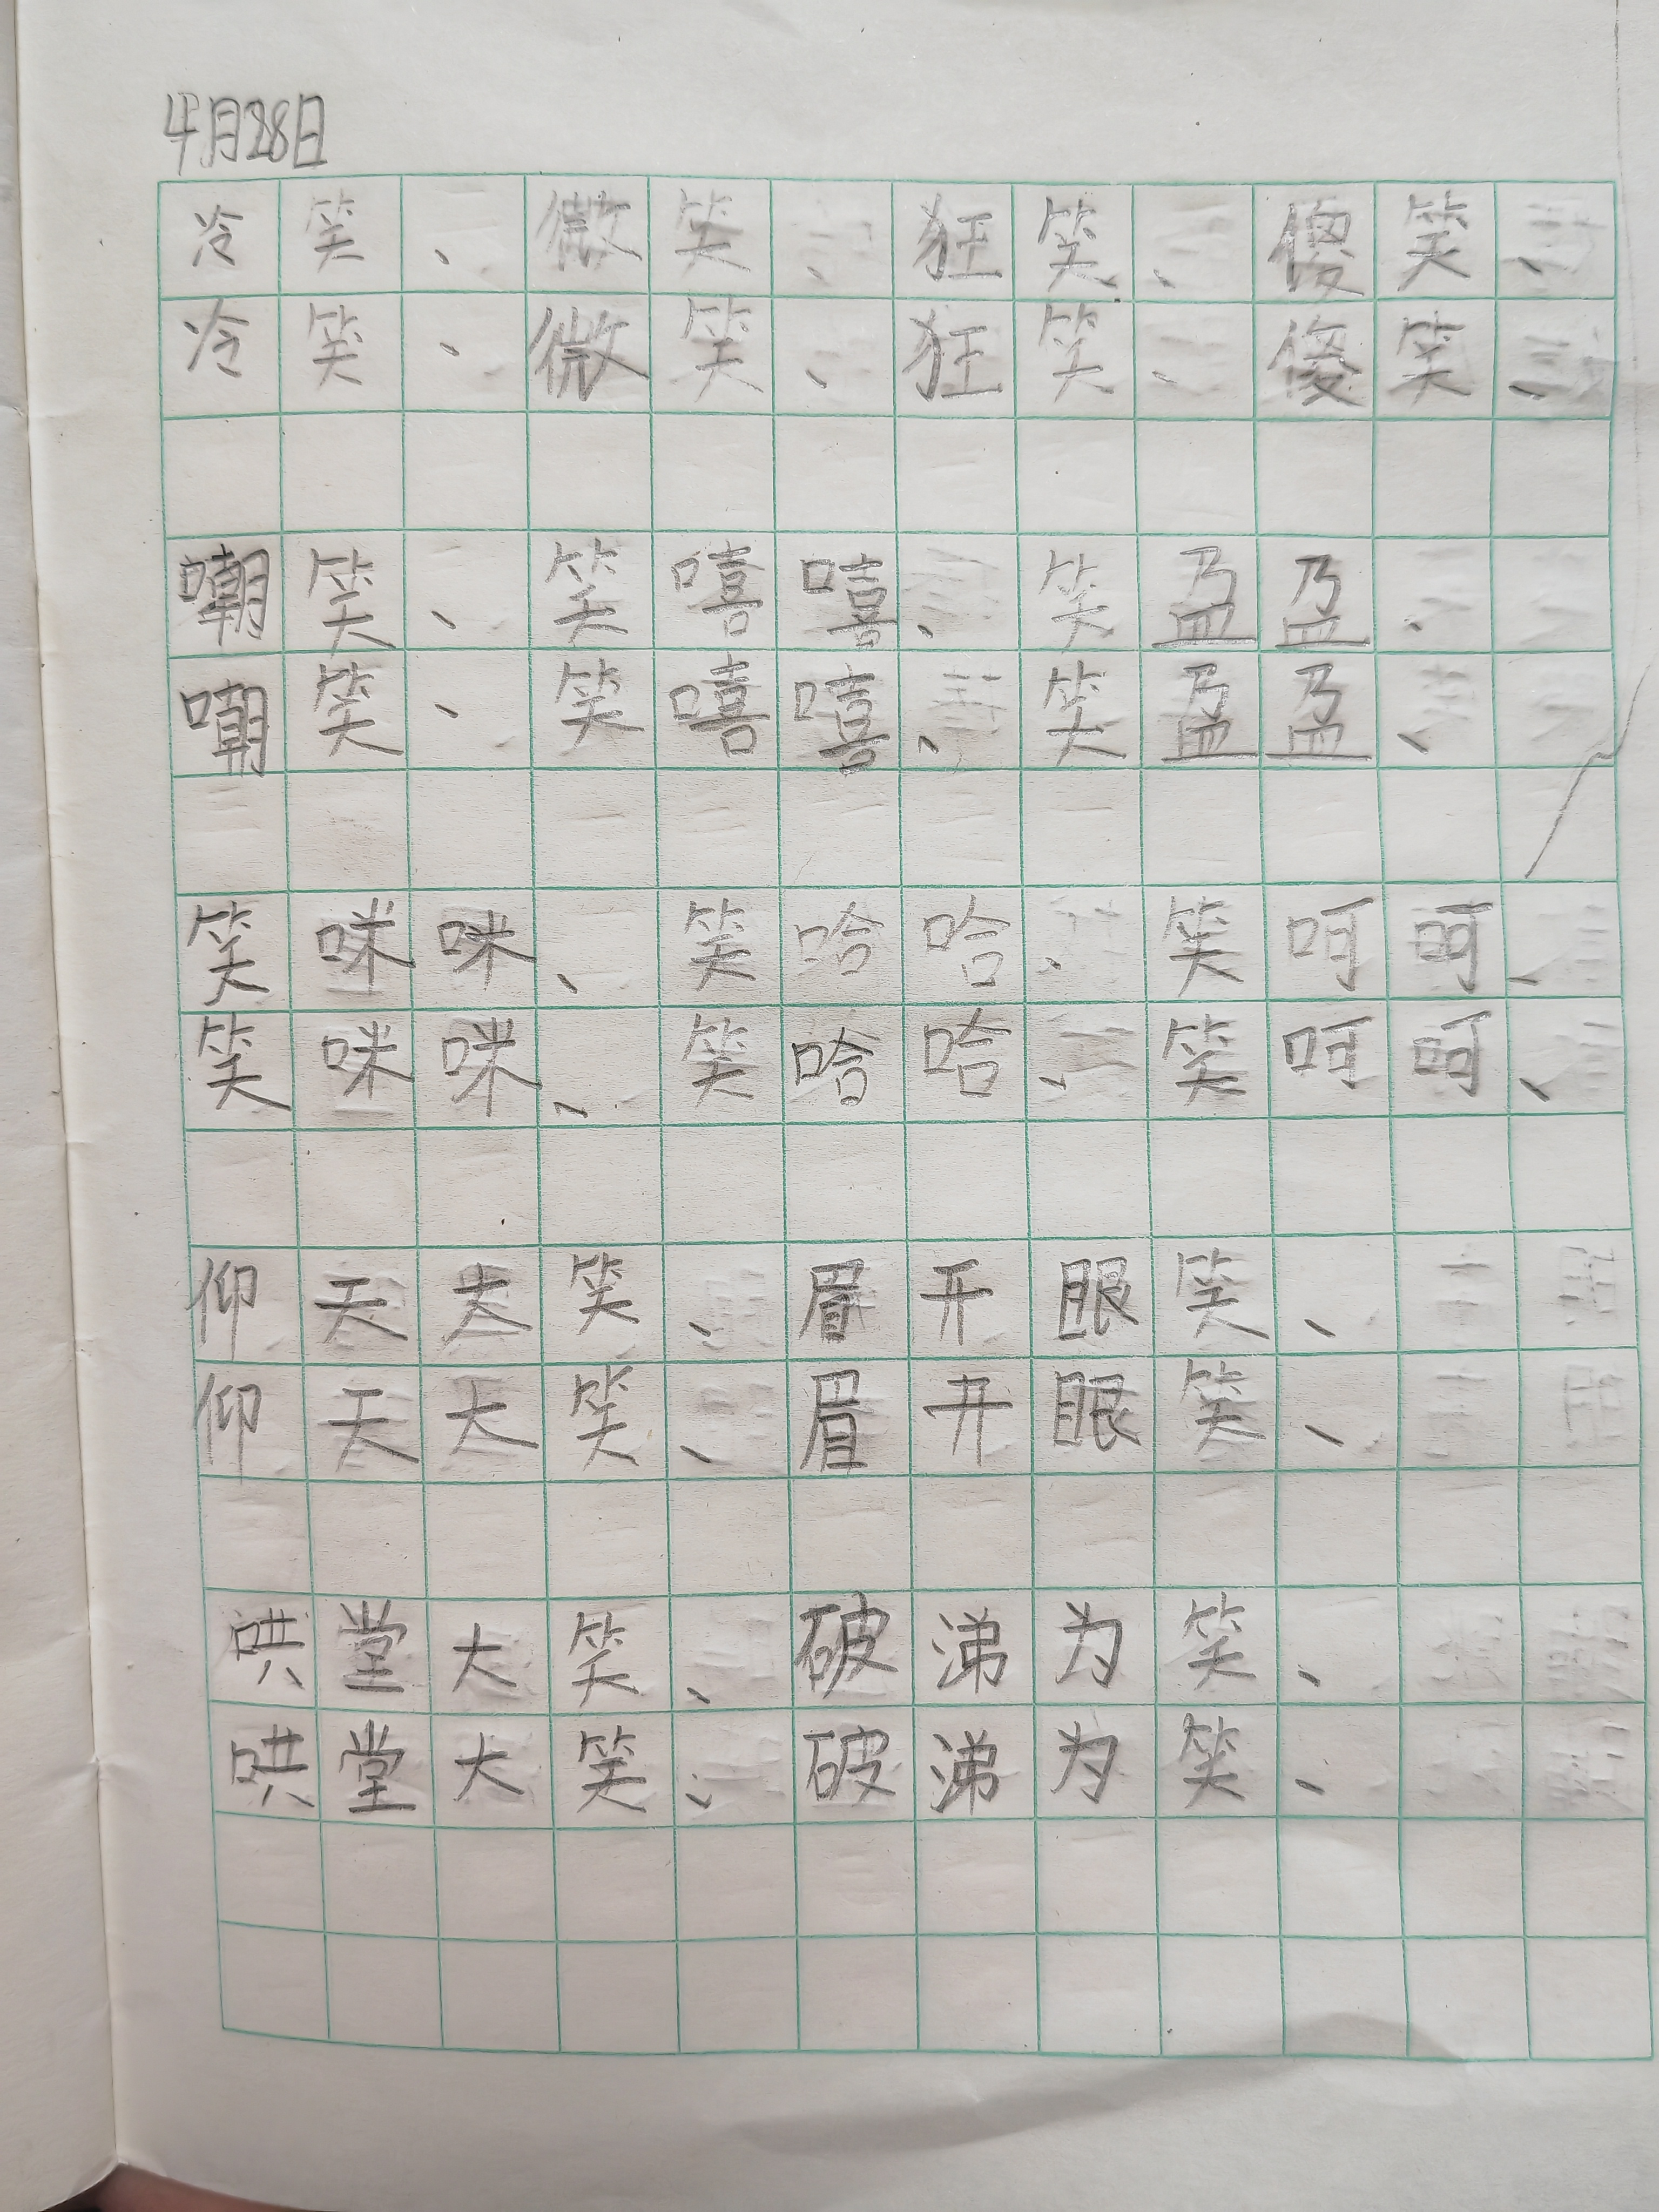 4月28日
冷笑、微笑、狂笑、傻笑、
冷笑、微笑、狂笑、傻笑、
嘲笑、笑嘻嘻、笑盈盈、
嘲笑、笑嘻嘻、笑盈盈、
笑咪咪、笑哈哈、笑呵呵、
笑咪咪、笑哈哈、笑呵呵、
仰天大笑、眉开眼笑、
仰天大笑、眉开眼笑、
哄堂大笑、破涕为笑、
哄堂大笑、破涕为笑、